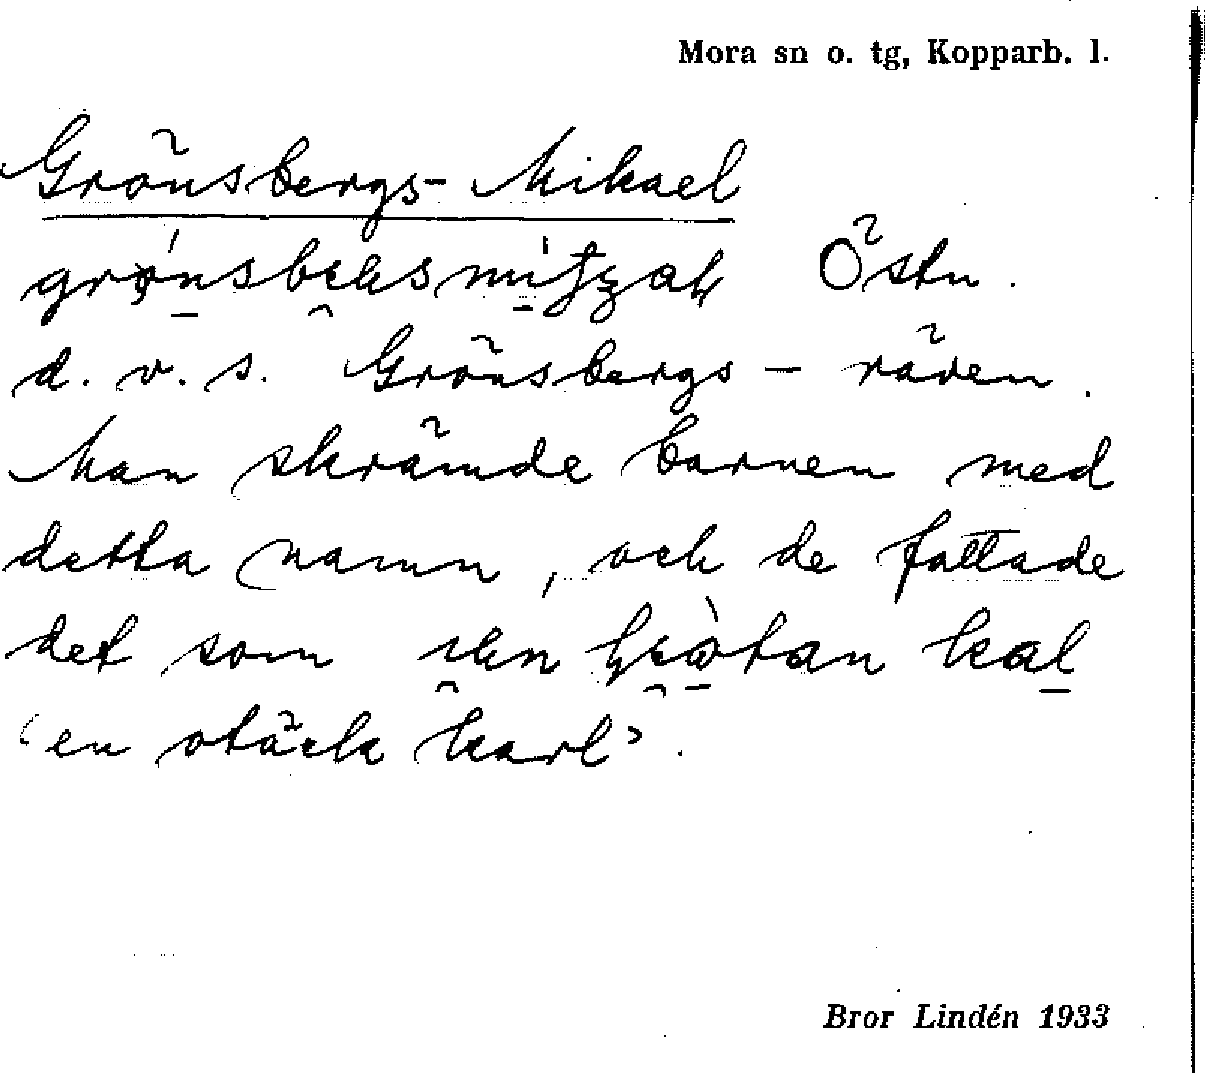 Mora sn o. tg, Kopparb. l.
Grönsbergs-Mikael
Östn.
d. v. s. Grönsbergs-räven.
Man skrämde barnen med
detta namn, och de fattade
det som kal
'en otäck karl'.
Bror Lindén 1933